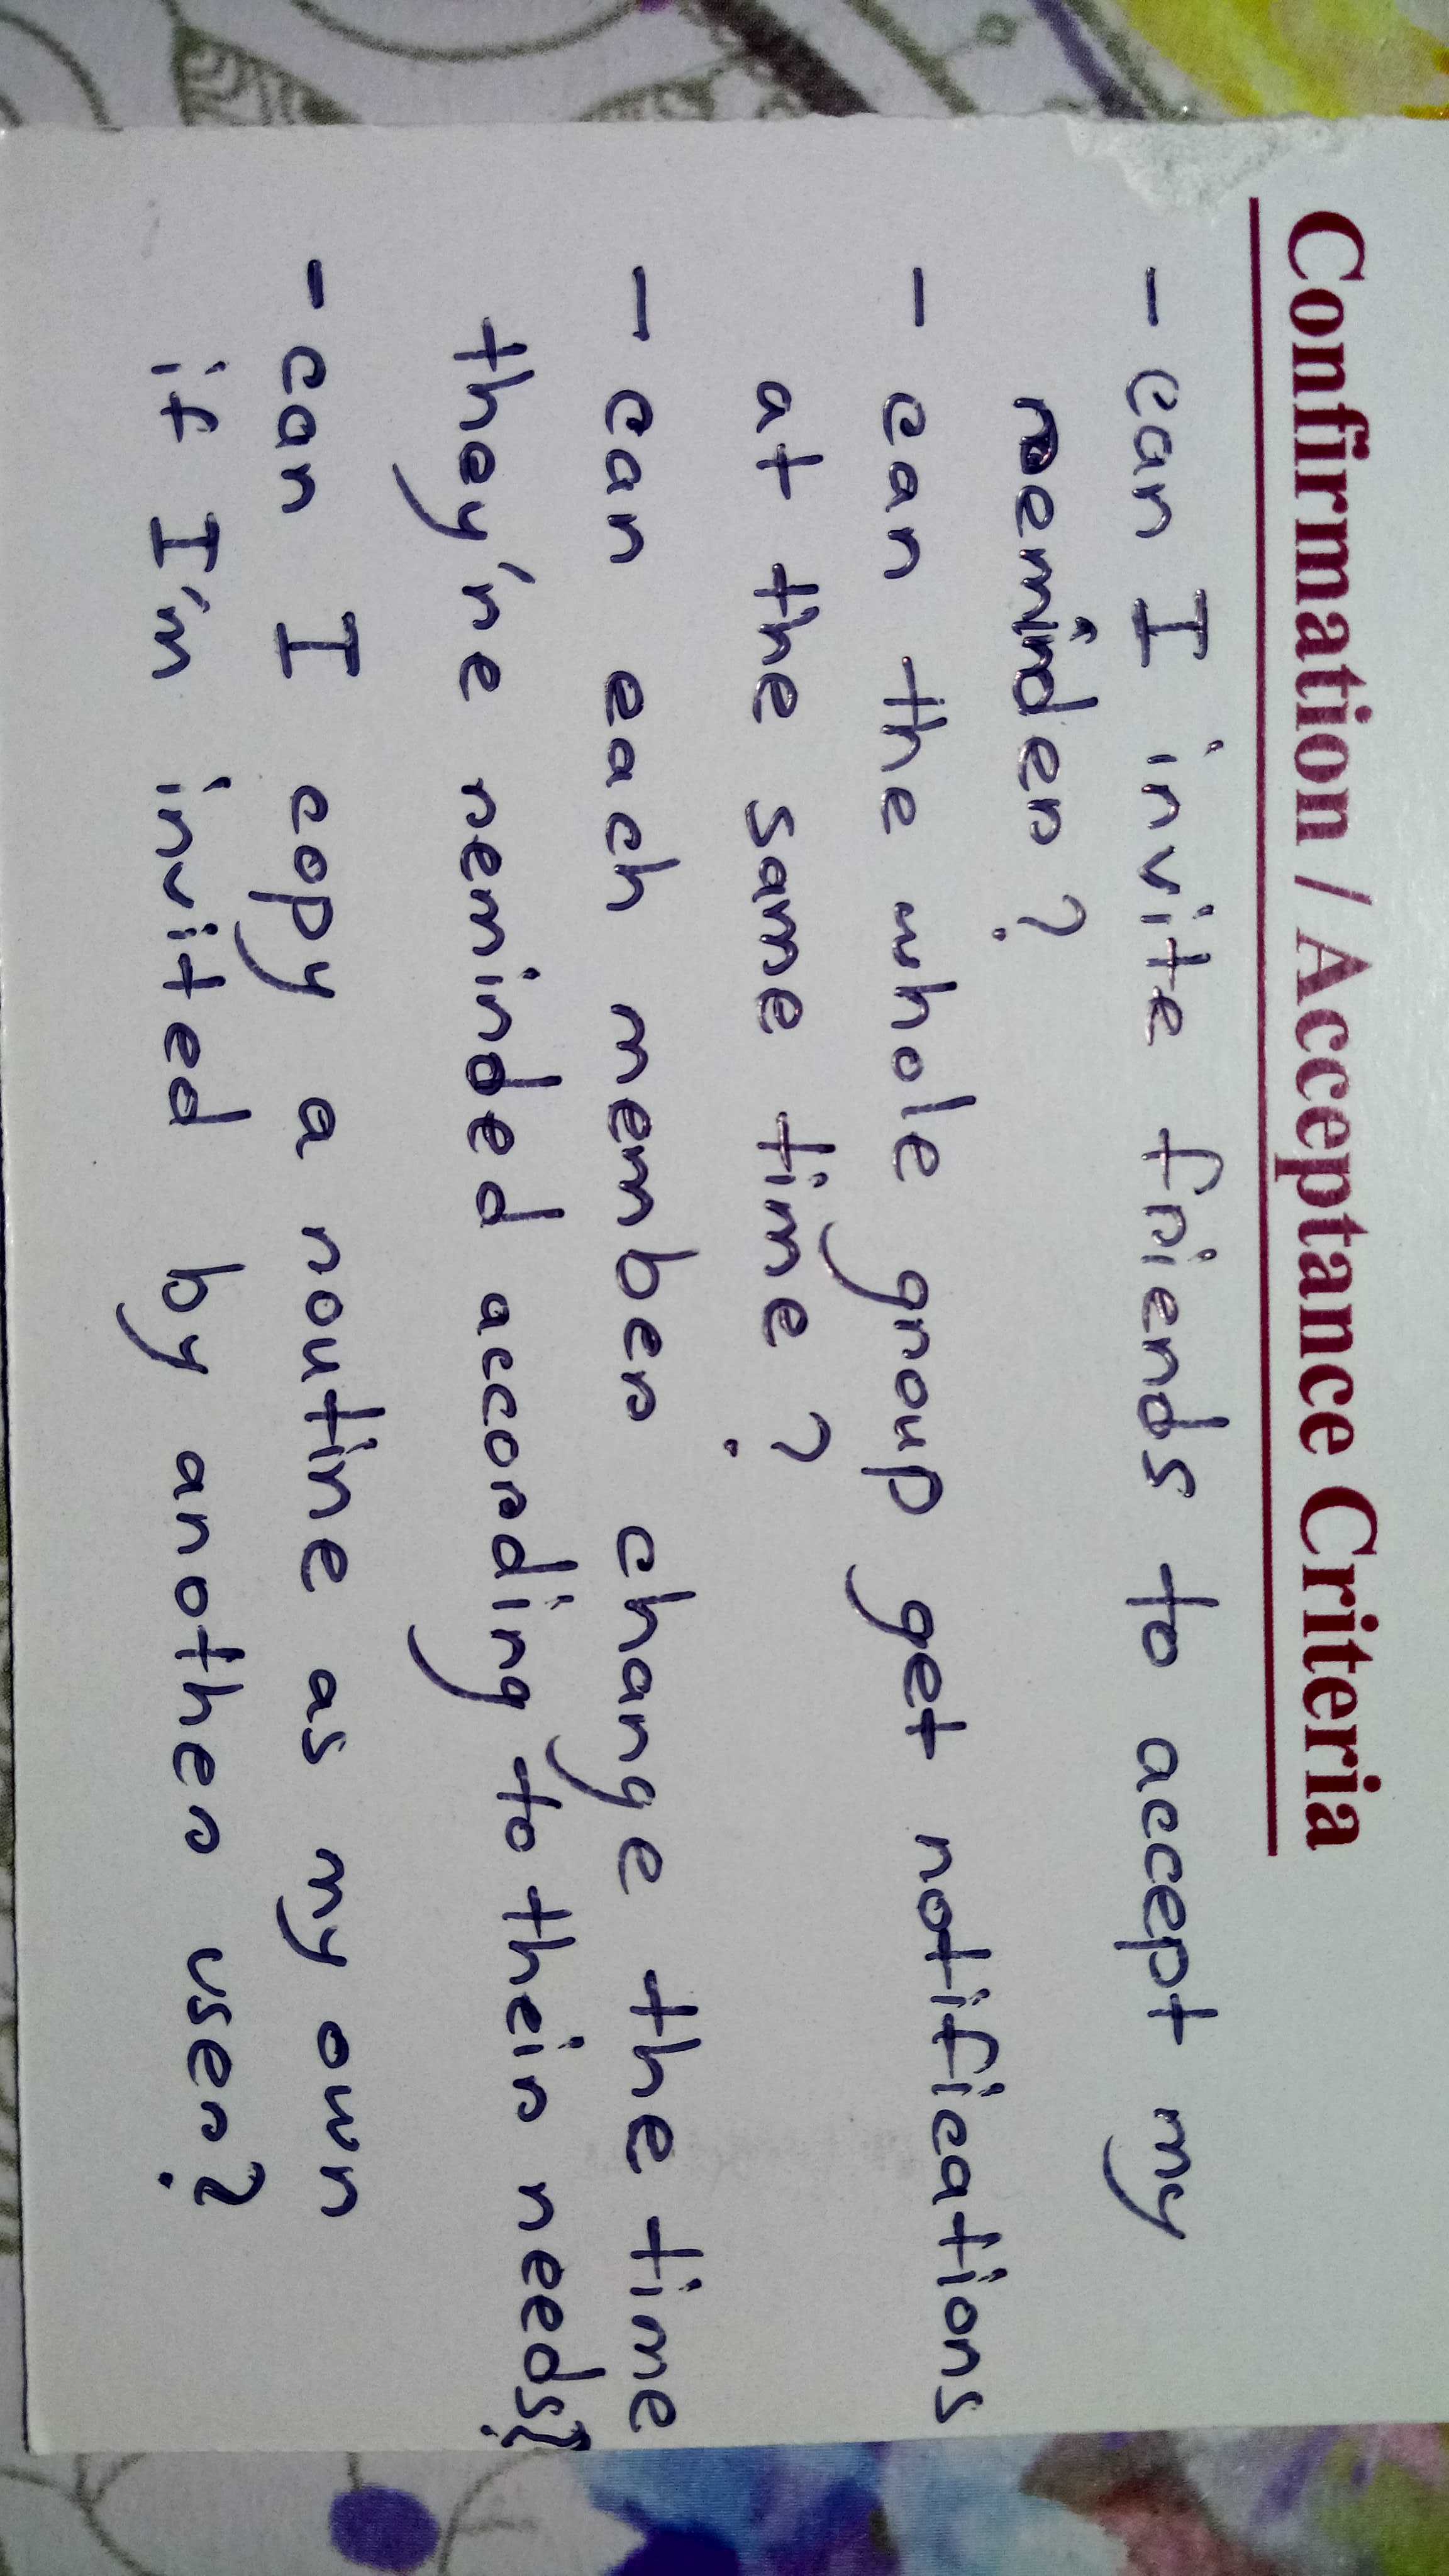 Confirmation / Acceptance Criteria
- can I invite friends to accept my
reminder?
- can the whole group get notifications
at the same time?
- can each member change the time
they're reminded according to their needs?
- can I copy a routine as my own
if I'm invited by another user?